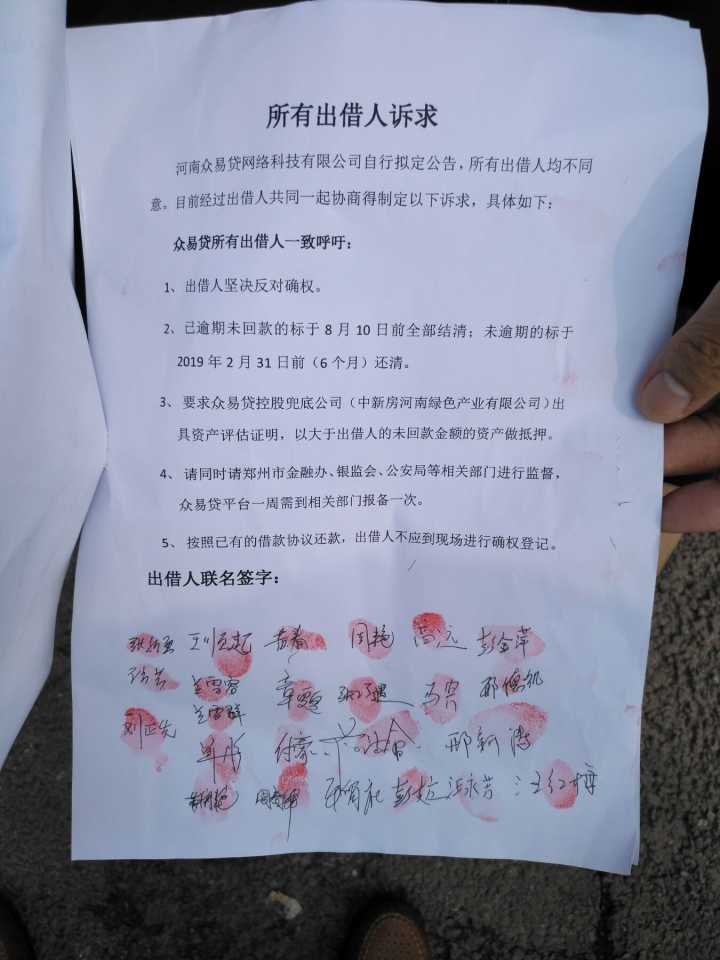 所有出借人诉求
河南众易贷网络科技有限公司自行拟定公告，所有出借人均不同
意。目前经过出借人共同一起协商得制定以下诉求，具体如下：
众易贷所有出借人一致呼吁：
1、出借人坚决反对确权。
2、已逾期未回款的标于 8 月 10 日前全部结清；未逾期的标于
2019 年 2 月 31 日前（6 个月）还清。
3、要求众易贷控股兜底公司（中新房河南绿色产业有限公司）出
具资产评估证明，以大于出借人的未回款金额的资产做抵押。
4、请同时请郑州市金融办、银监会、公安局等相关部门进行监督，
众易贷平台一周需到相关部门报备一次。
5、按照已有的借款协议还款，出借人不应到现场进行确权登记。
出借人联名签字：
周艳 高远 彭金萍
刘正先